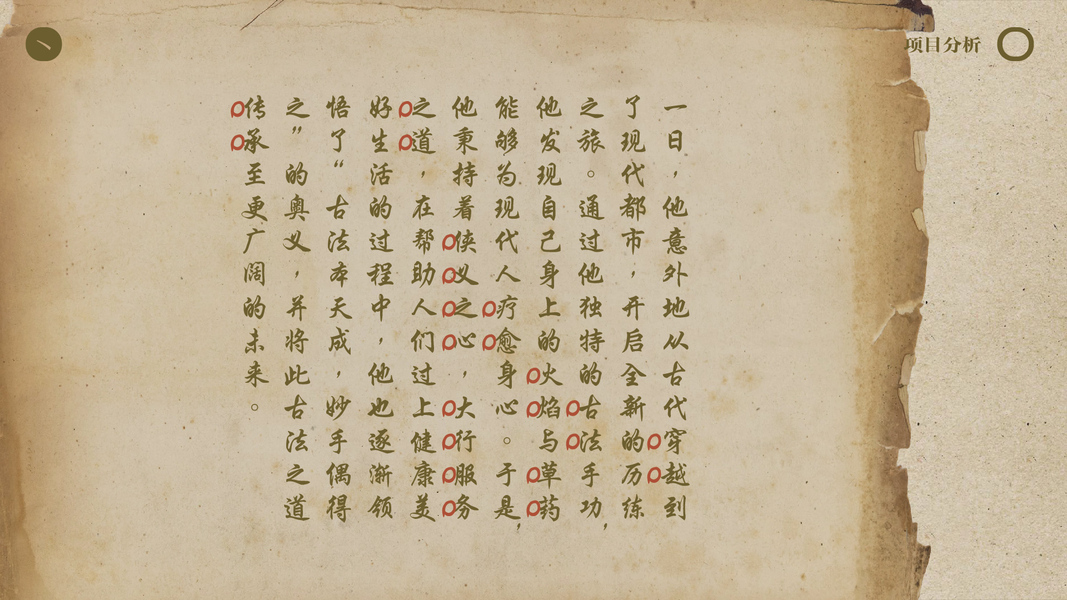 项目分析
一日，他意外地从古代穿越到
了现代都市，开启全新的历练
之旅。通过他独特的古法手功，
他发现自己身上的火焰与草药
能够为现代人疗愈身心。于是，
他秉持着侠义之心，大行服务
之道，在帮助人们过上健康美
好生活的过程中，他也逐渐领
悟了“古法本天成，妙手偶得
之”的奥义，并将此古法之道
传承至更广阔的未来。